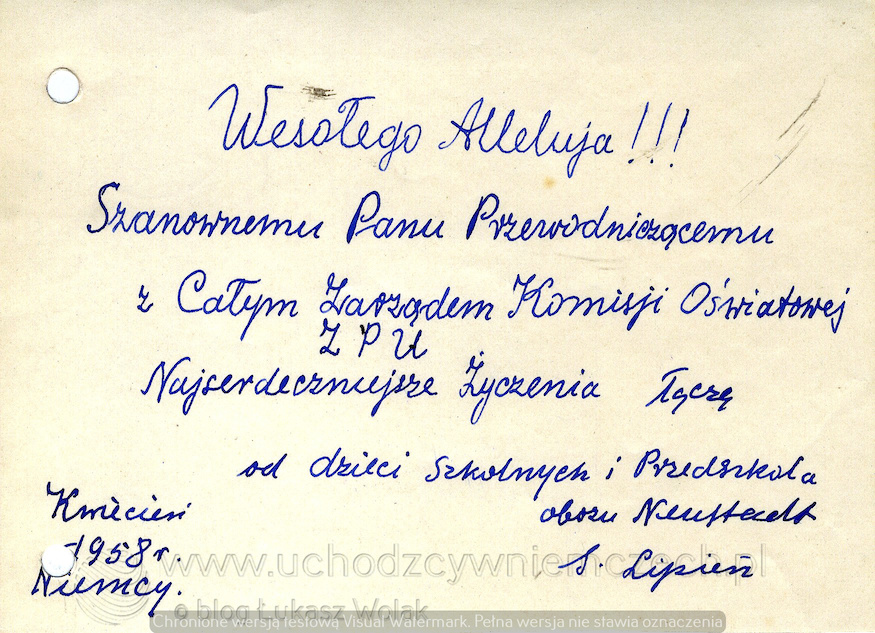 Wesołego Alleluja!!!
Szanownemu Panu Przewodniczącemu
z Całym Zarządem Komisji Oświatowej
Z P U
Najserdeczniejsze Życzenia łączę
od dzieci szkolnych i Przedszkola
obozu Neustadt
Kwiecień
1958 r.
Niemcy.
S. Lipień
www.uchodzcywniemczech.pl
© blog Łukasz Wolak
Chronione wersją testową Visual Watermark. Pełna wersja nie stawia oznaczenia